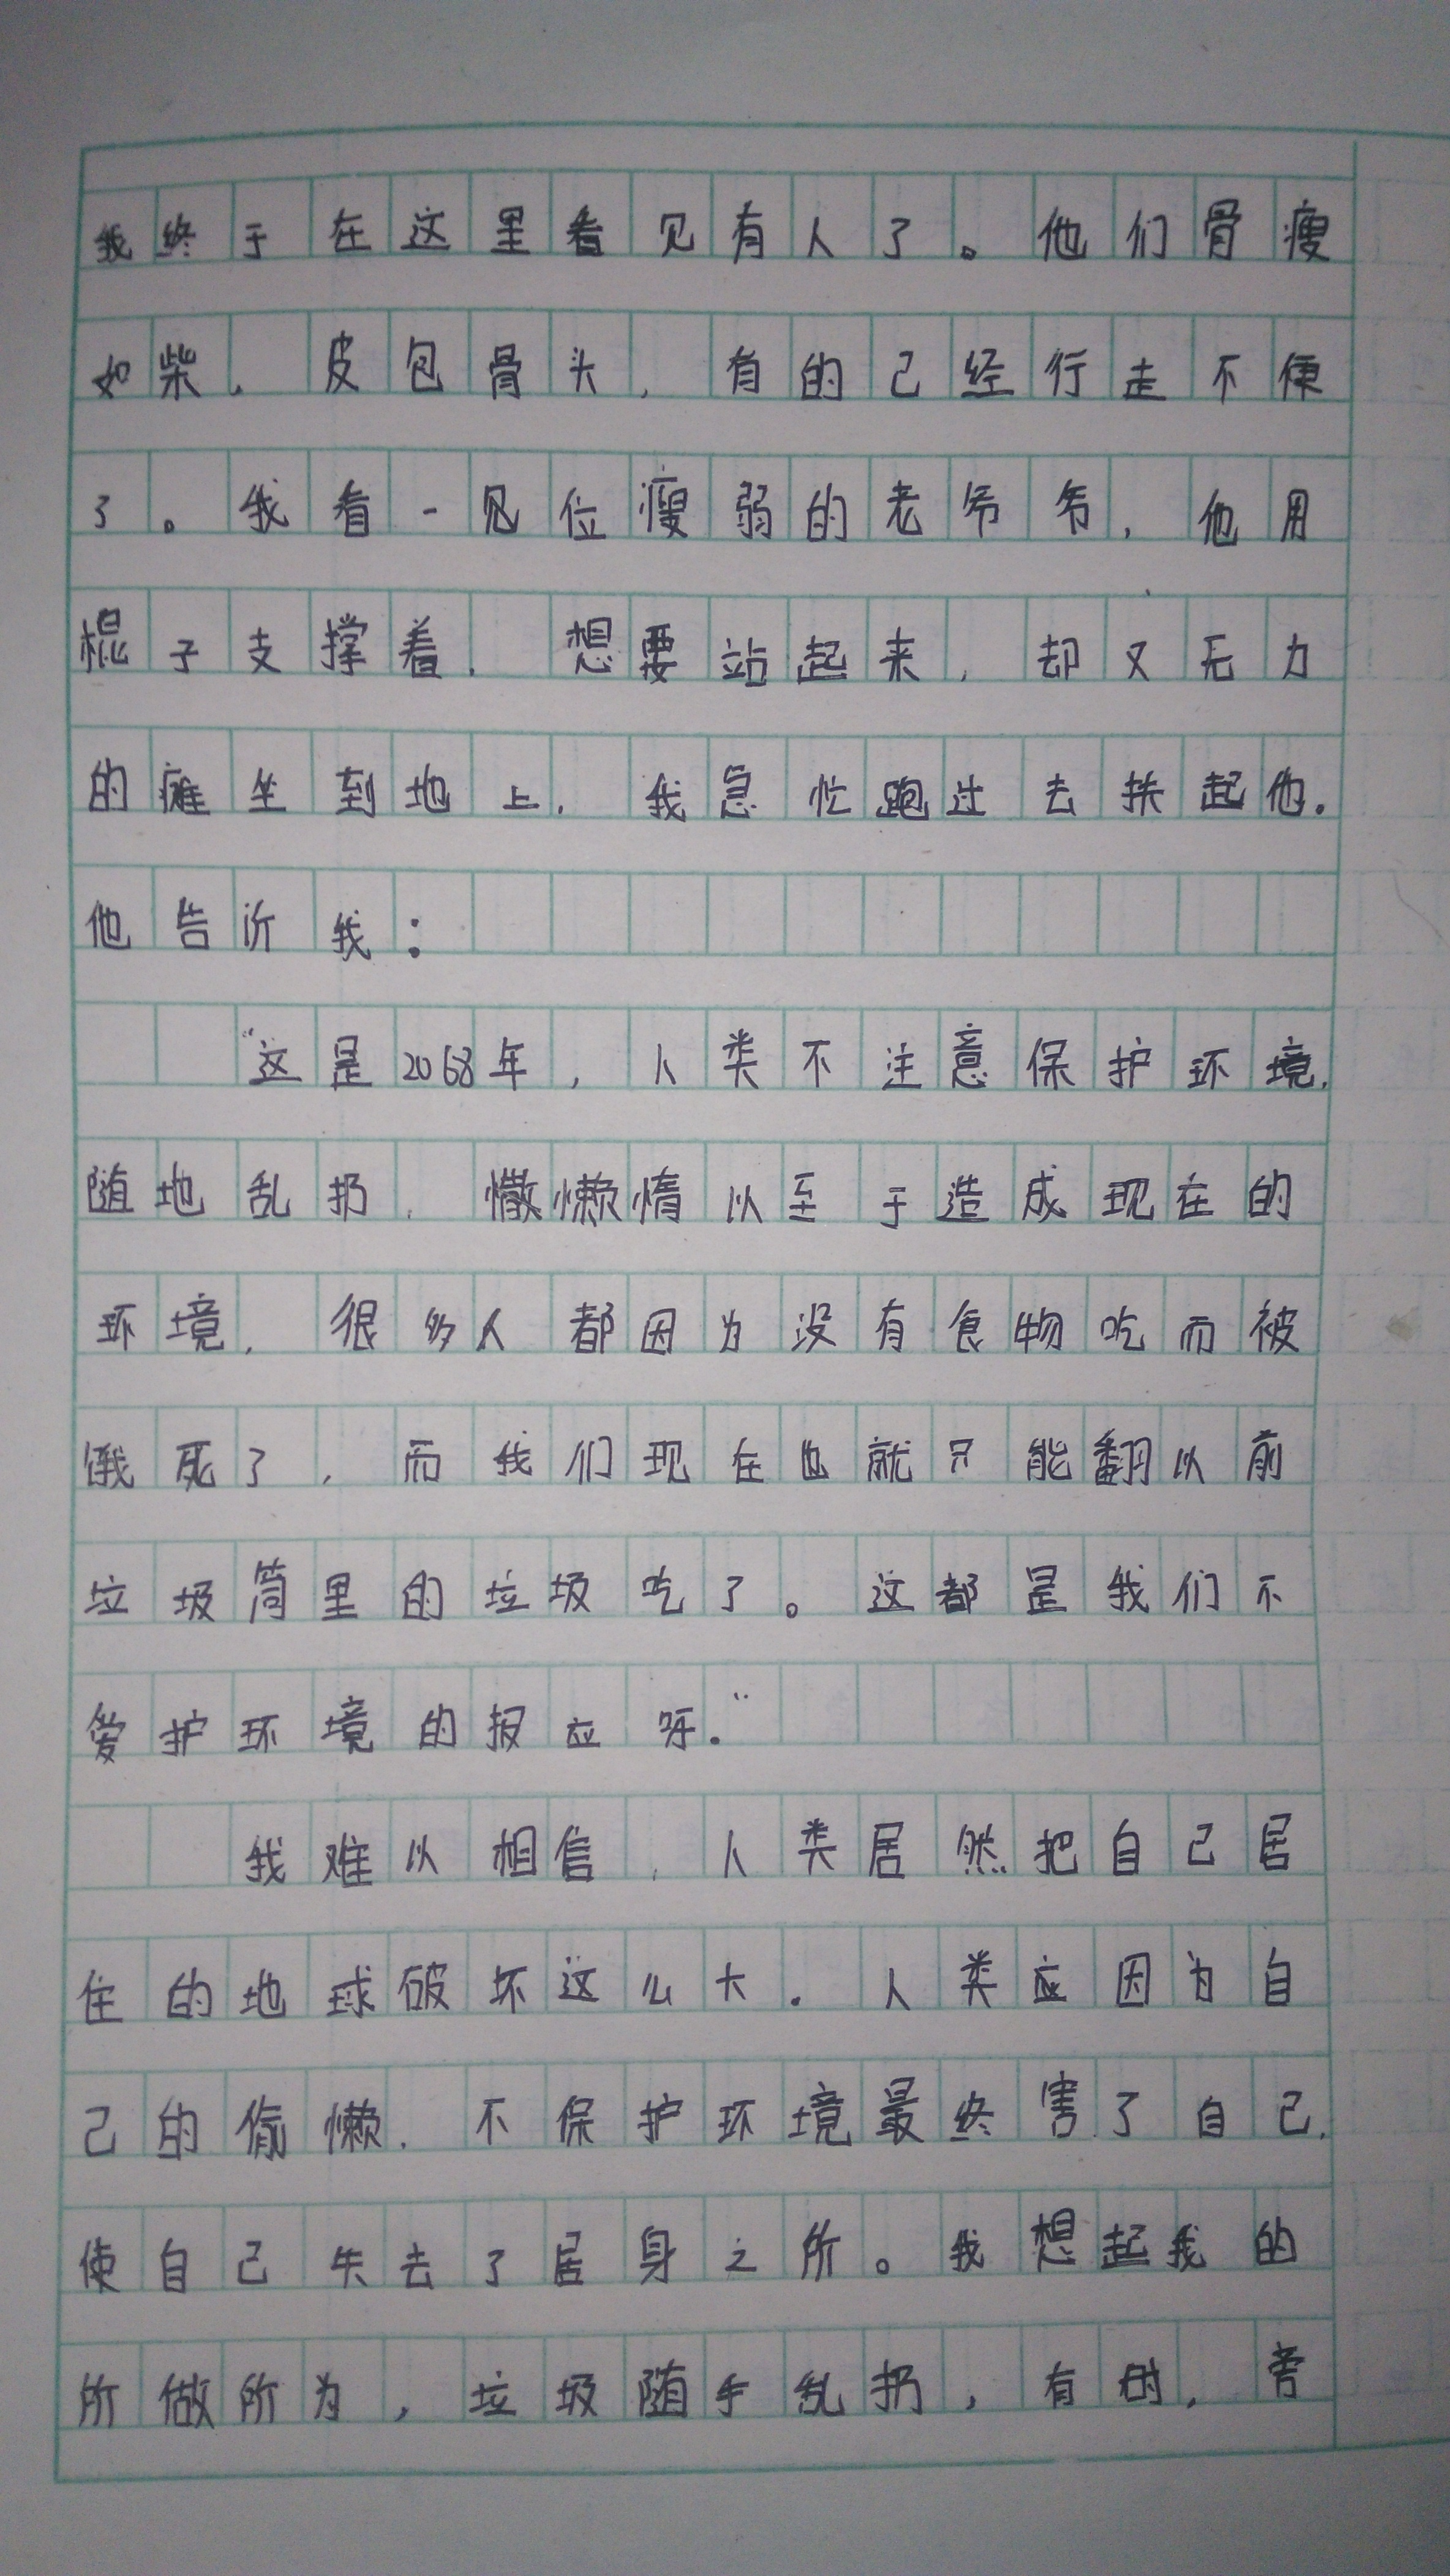 我终于在这里看见有人了。他们骨瘦
如柴，皮包骨头，有的己经行走不便
了。我看一见位瘦弱的老爷爷，他用
棍子支撑着，想要站起来，却又无力
的瘫坐到地上，我急忙跑过去扶起他。
他告诉我：
“这是2068年，人类不注意保护环境，
随地乱扔，懒惰以至于造成现在的
环境，很多人都因为没有食物吃而被
饿死了，而我们现在也就只能翻以前
垃圾筒里的垃圾吃了。这都是我们不
爱护环境的报应呀。”
我难以相信，人类居然把自己居
住的地球破坏这么大．人类应因为自
己的偷懒，不保护环境最终害了自己，
使自己失去了居身之所。我想起我的
所做所为，垃圾随手乱扔，有时，旁